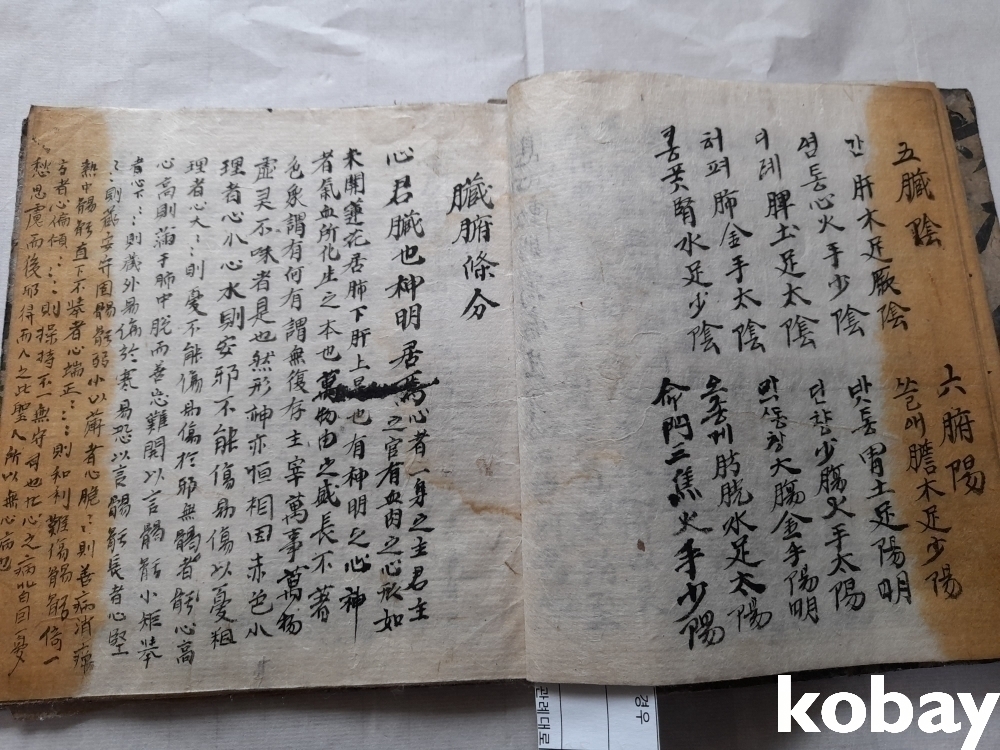 五臟陰
간 肝木足厥陰
염통 心火手少陰
이레 脾土足太陰
허펴 肺金手太陰
콩풋 腎水足少陰
六腑陽
쓸애 膽木足少陽
밧통 胃土足陽明
단챵 少膓火手太陽
막챵 大膓金手陽明
오줌께 肪胱水足太陽
命門三焦火手少陽
臟腑條分
心君臟也神明居焉心者一身之主君主
之官有血肉之心形如
未開蓮花居肺下肝上是也有神明之心神
者氣血所化生之本也萬物由之盛長不著
色象謂有何有謂無復存主宰萬事萬物
虛灵不昧者是也然形神亦恒相因赤色小
理者心小心小則安邪不能傷易傷以憂粗
理者心大〻則憂不能傷易傷於邪無䯏者心高
心高則滿于肺中悗而善忘難開以言䯏 小短举
者心下〻則藏外易傷於寒易恐以言䯏 長者心堅
〻則藏安守固䯏 弱小以薄者心脆〻則善病消癉
熱中䯏 直下不举者心端正〻則和利難傷䯏 倚一
方者心偏傾〻則操持不一無守司也忙心之病皆因憂
愁思慮而後邪得而入之此聖人所以無心病也
경우
관례대로
kobay